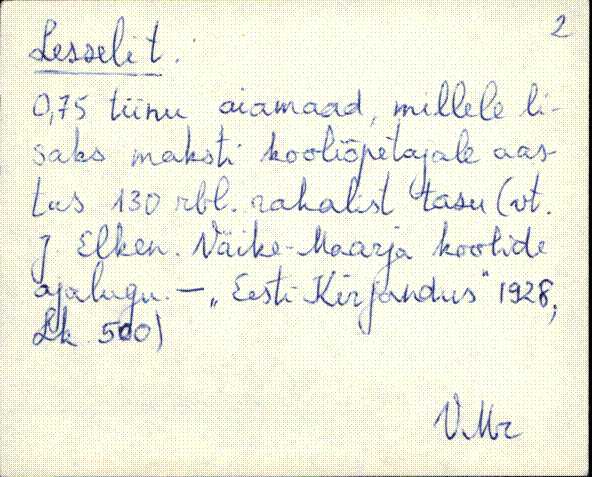 2
Lesseli t.
0,75 tiinu aiamaad, millele li-
saks maksti kooliõpetajale aas-
tas 130 rbl. rahalist tasu (vt.
J. Elken. Väike-Maarja koolide
ajalugu. – „Eesti Kirjandus" 1928,
Lk. 500)
VMr